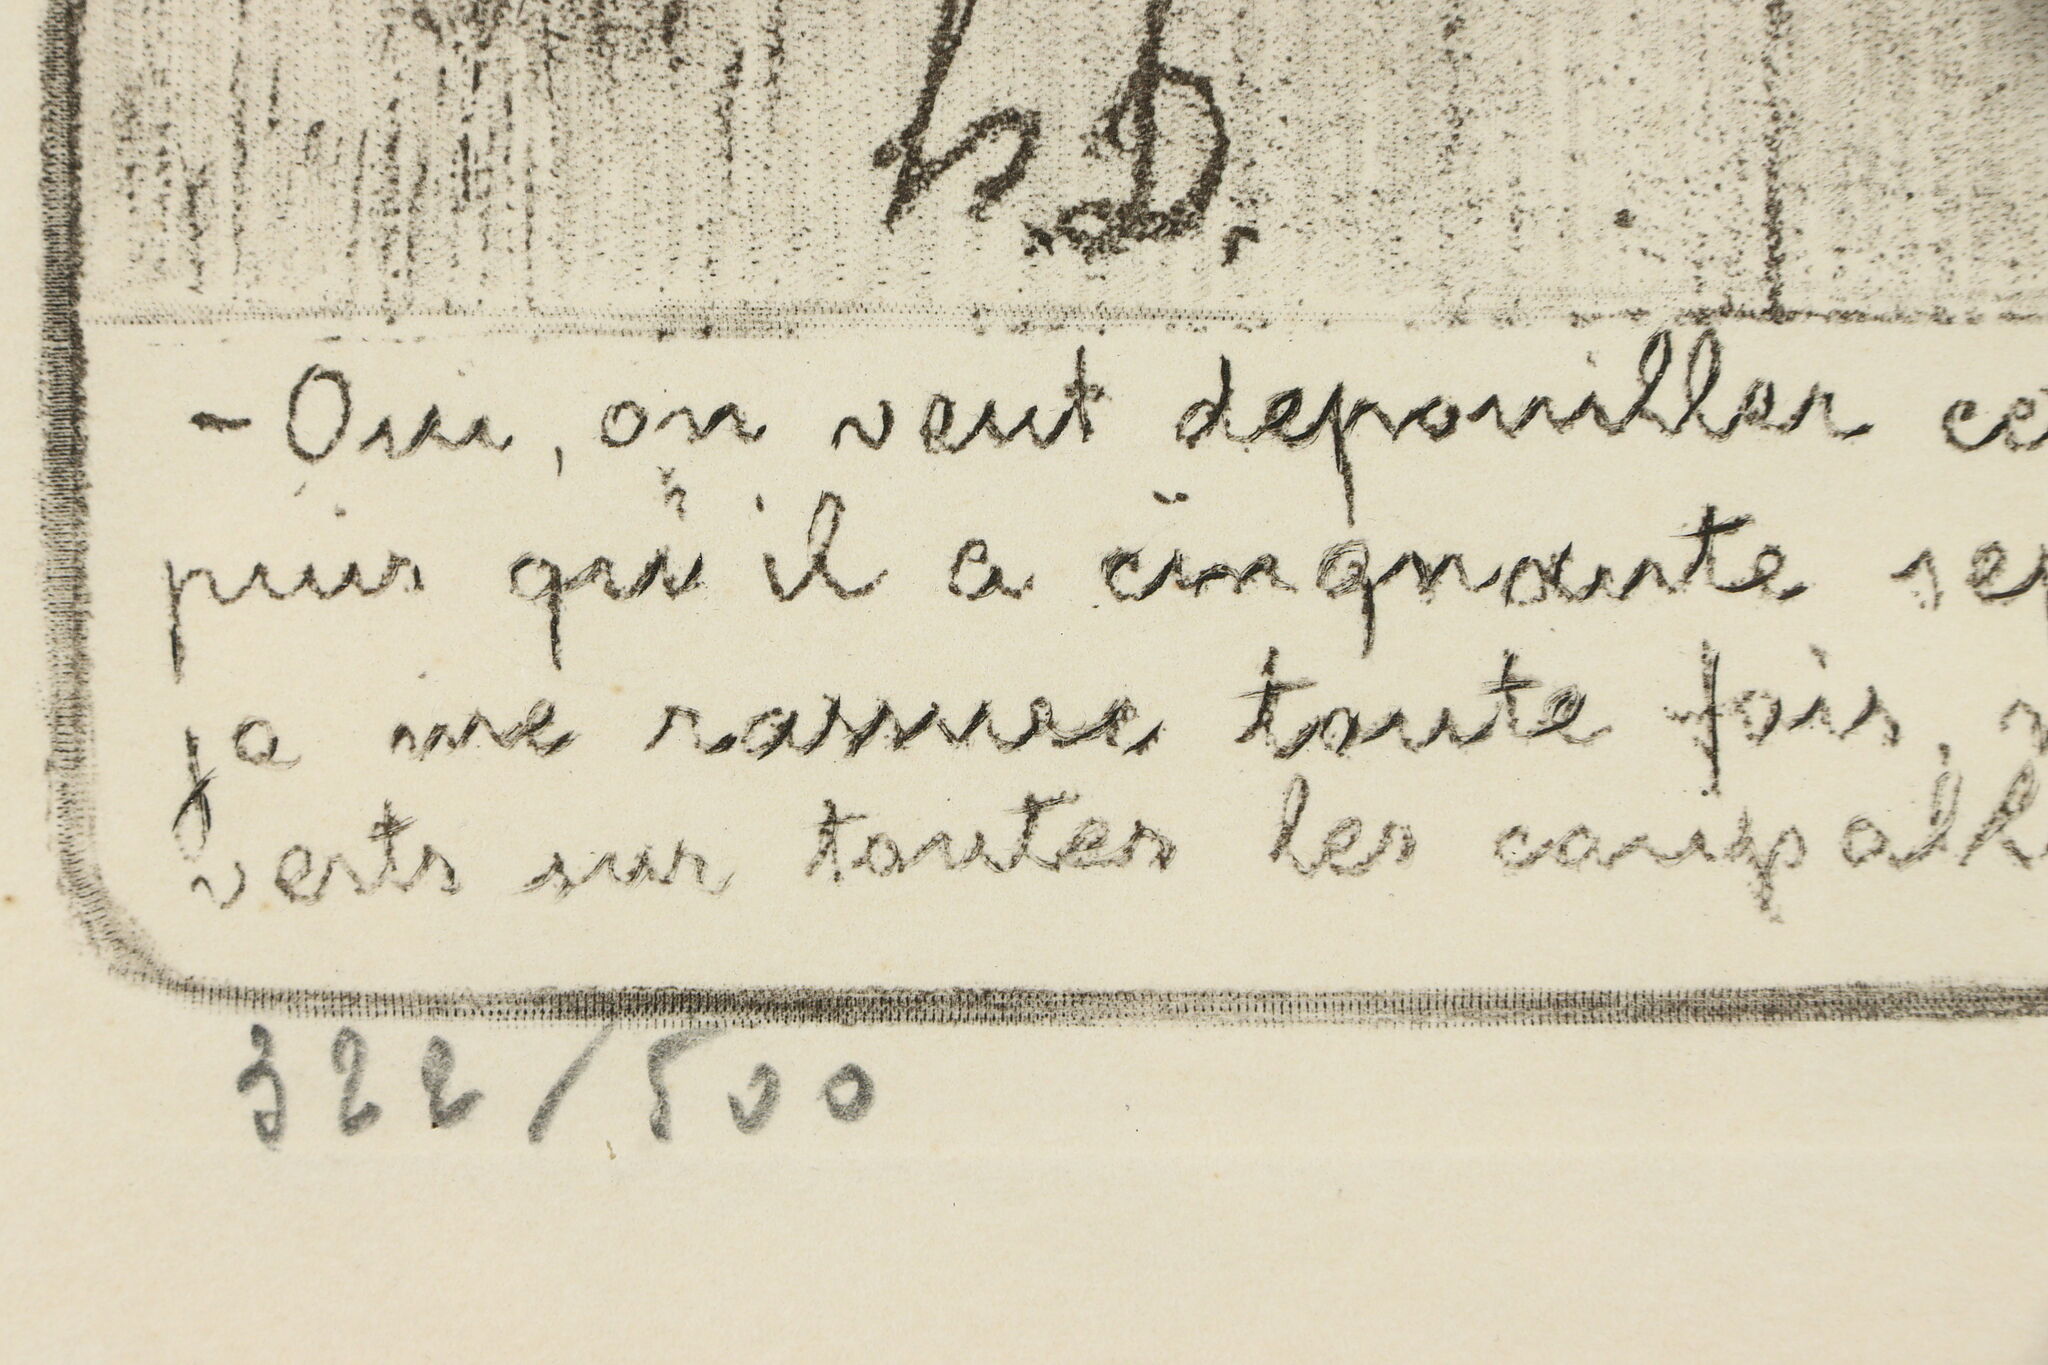 h.D.
- Oui, on veut depouiller ce
puis qu'il a cinquante sep
je me rassure toute fois,
verts sur toutes les
322/500